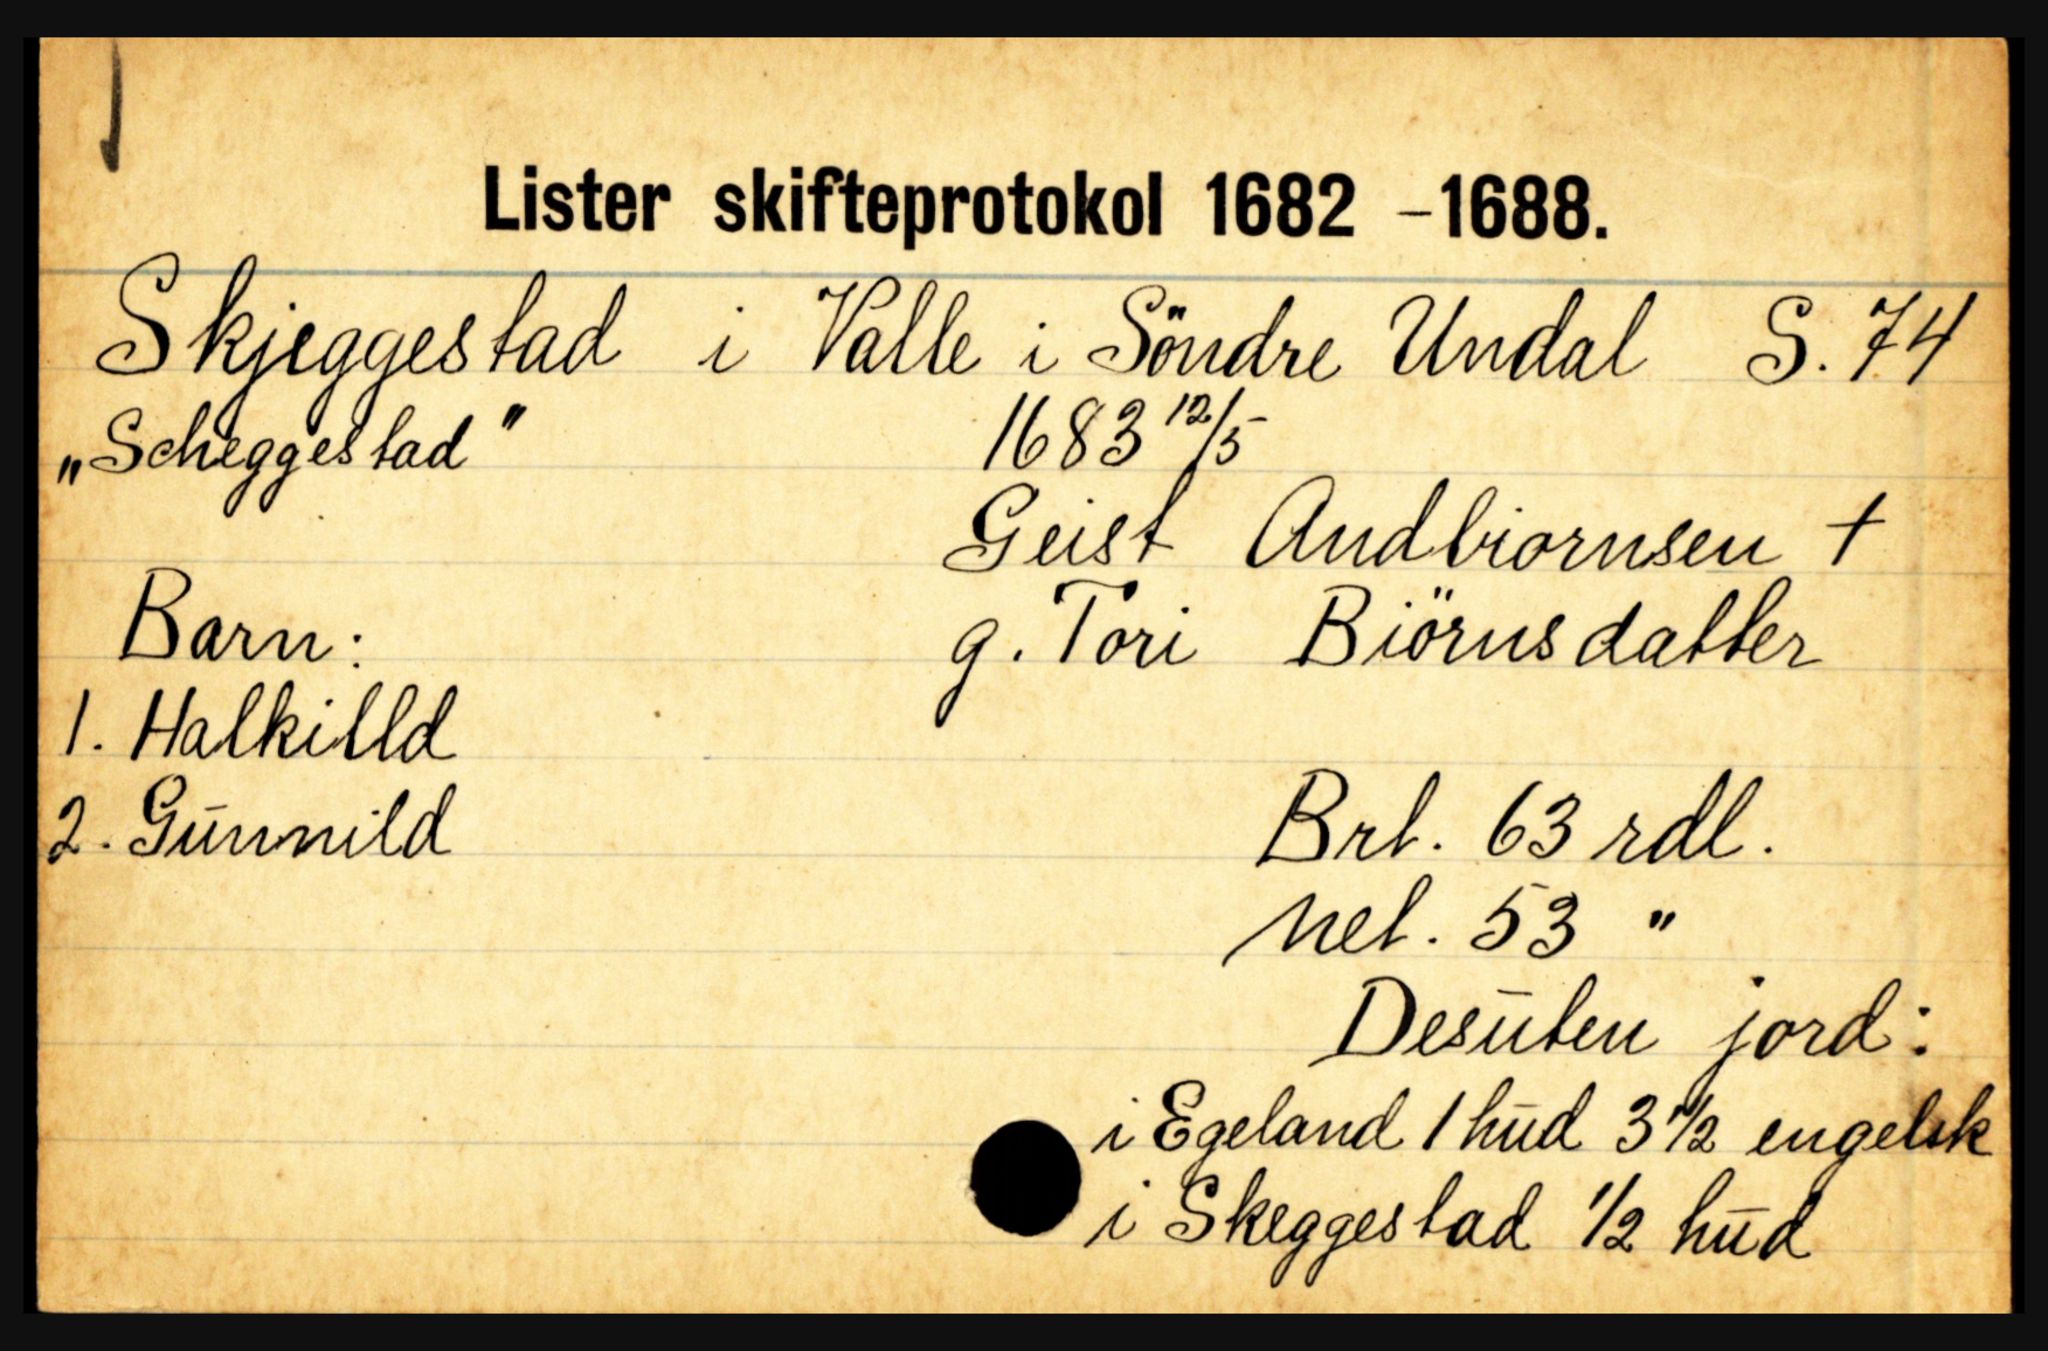 Lister skifteprotokol 1682 -1688.
Skjeggestad i Valle i Söndre Undal S. 74
„Scheggestad" 1683 12/5
Geist Andbiornsen +
Barn: g. Tori Biörnsdatter
1. Halkilld
2. Gūnnild Brt. 63 rdl.
Net. 53 "
Desūten jord:
i Egeland 1 hūd 3 1/2 engelsk
i Skeggestad 1/2 hūd